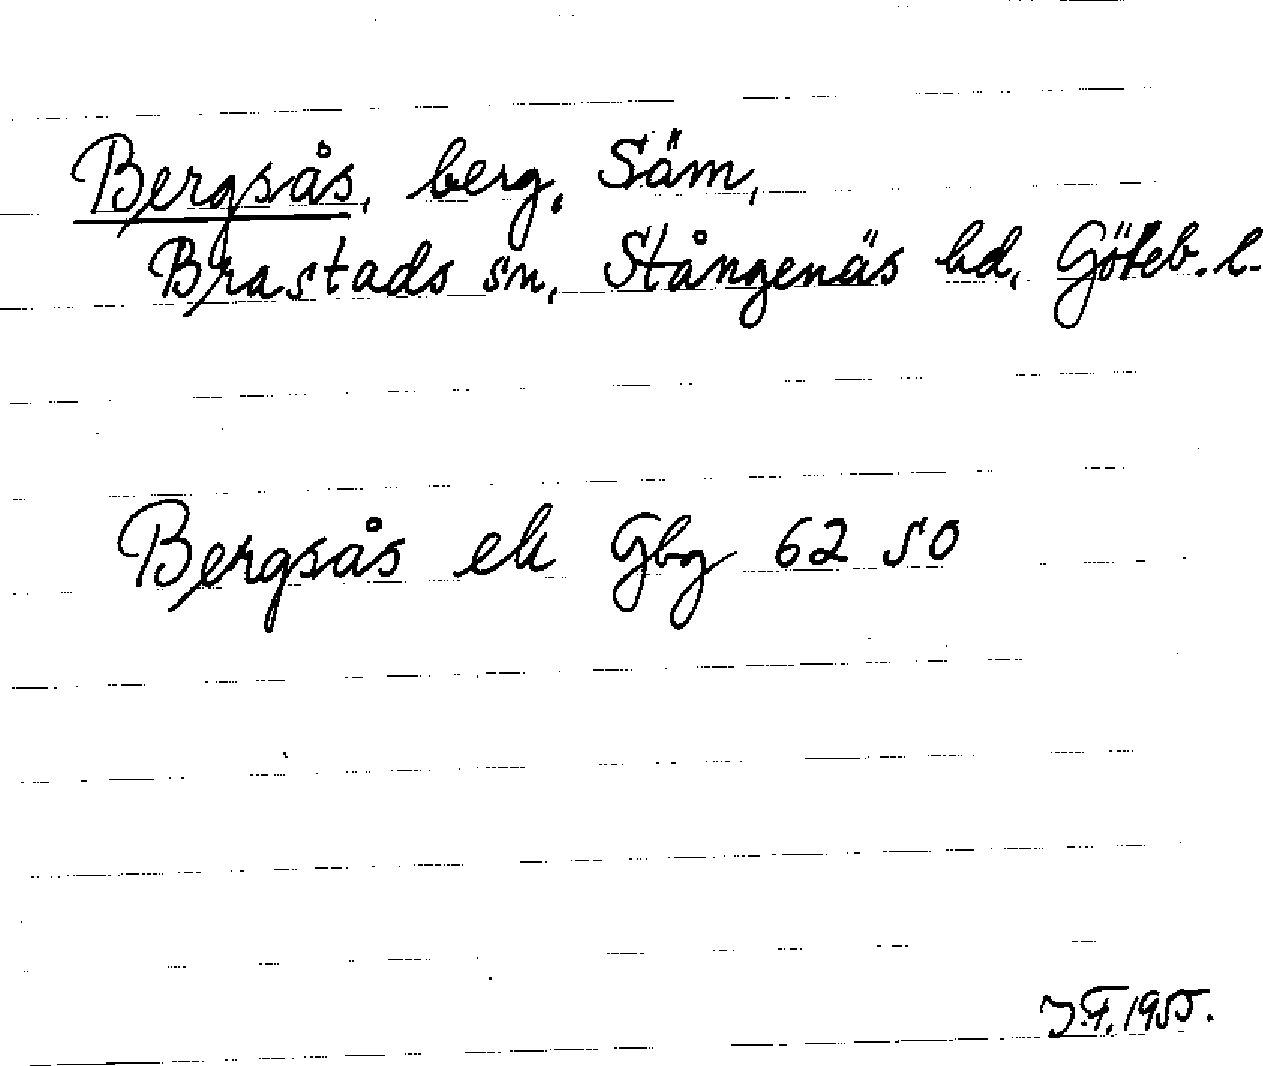 Bergsås, berg, Säm,
Brastads sn, Stångenäs hd, Göteb. l.
Bergsås ek Gbg 62 50
J.F. 1955.